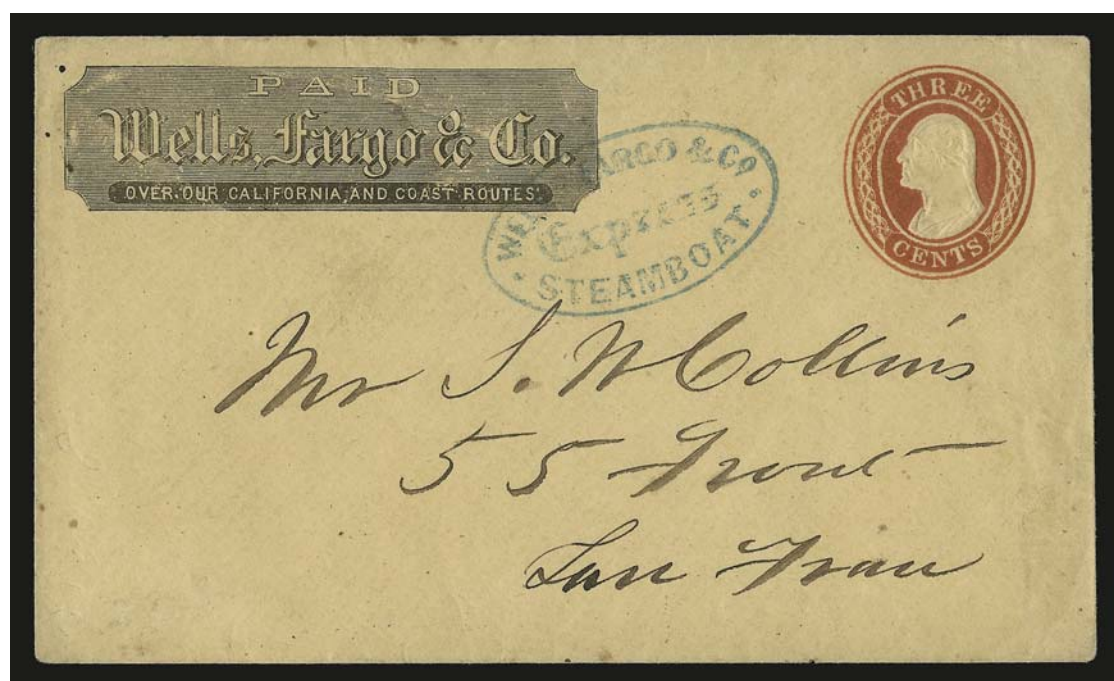 PAID
Wells, Fargo & Co.
OVER OUR CALIFORNIA AND COAST ROUTES.
WELLS FARGO & CO
Express
STEAMBOAT
THREE
CENTS
Mr S. W Collins
55 Front
San Fran